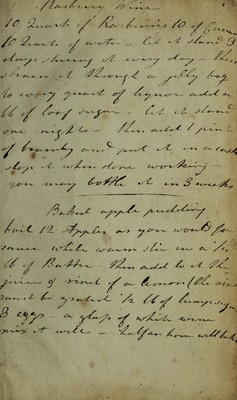 Rasbury Wine
10 Quarts of Rasberries 10 of
10 Quarts of water - let it stand 3
days stiring it every day - then
strain it through a jelly bag
to every quart of liquor add a
lb of loaf sugar - let it stand
one night - then add 1 pint
of brandy and put it in a cask
stop it when done working -
you may bottle it in 3 weeks
Baked apple pudding
boil 12 Apples as you would for
sauce while warm stir in a 1/2
lb of Butter - then add to it the
juice & rind of a lemon (the rind
must be grated 1/2 lb of lump sugar
8 eggs - a glass of white wine
mix it well - half an hour will bake